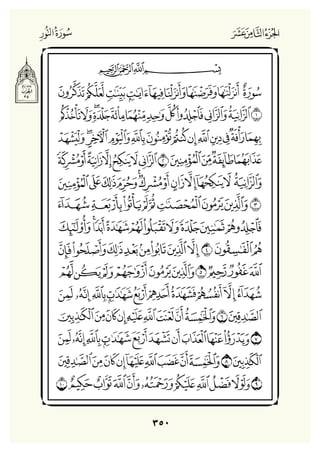 الجزء الثامن عشر
سورة النور
بسم الله الرحمن الرحيم
سُورَةٌ أَنزَلْنَٰهَا وَفَرَضْنَٰهَا وَأَنزَلْنَا فِيهَآ ءَايَٰتٍۭ بَيِّنَٰتٍ لَّعَلَّكُمْ تَذَكَّرُونَ
١ ٱلزَّانِيَةُ وَٱلزَّانِى فَٱجْلِدُوا۟ كُلَّ وَٰحِدٍ مِّنْهُمَا مِا۟ئَةَ جَلْدَةٍ ۖ وَلَا تَأْخُذْكُم
بِهِمَا رَأْفَةٌ فِى دِينِ ٱللَّهِ إِن كُنتُمْ تُؤْمِنُونَ بِٱللَّهِ وَٱلْيَوْمِ ٱلْءَاخِرِ ۖ وَلْيَشْهَدْ
عَذَابَهُمَا طَآئِفَةٌ مِّنَ ٱلْمُؤْمِنِينَ ٢ ٱلزَّانِى لَا يَنكِحُ إِلَّا زَانِيَةً أَوْ مُشْرِكَةً
وَٱلزَّانِيَةُ لَا يَنكِحُهَآ إِلَّا زَانٍ أَوْ مُشْرِكٌ ۚ وَحُرِّمَ ذَٰلِكَ عَلَى ٱلْمُؤْمِنِينَ
٣ وَٱلَّذِينَ يَرْمُونَ ٱلْمُحْصَنَٰتِ ثُمَّ لَمْ يَأْتُوا۟ بِأَرْبَعَةِ شُهَدَآءَ
فَٱجْلِدُوهُمْ ثَمَٰنِينَ جَلْدَةً وَلَا تَقْبَلُوا۟ لَهُمْ شَهَٰدَةً أَبَدًا ۚ وَأُو۟لَٰٓئِكَ
هُمُ ٱلْفَٰسِقُونَ ٤ إِلَّا ٱلَّذِينَ تَابُوا۟ مِنۢ بَعْدِ ذَٰلِكَ وَأَصْلَحُوا۟ فَإِنَّ
ٱللَّهَ غَفُورٌ رَّحِيمٌ ٥ وَٱلَّذِينَ يَرْمُونَ أَزْوَٰجَهُمْ وَلَمْ يَكُن لَّهُمْ
شُهَدَآءُ إِلَّآ أَنفُسُهُمْ فَشَهَٰدَةُ أَحَدِهِمْ أَرْبَعُ شَهَٰدَٰتٍۭ بِٱللَّهِ ۙ إِنَّهُۥ لَمِنَ
ٱلصَّٰدِقِينَ ٦ وَٱلْخَٰمِسَةُ أَنَّ لَعْنَتَ ٱللَّهِ عَلَيْهِ إِن كَانَ مِنَ ٱلْكَٰذِبِينَ
٧ وَيَدْرَؤُا۟ عَنْهَا ٱلْعَذَابَ أَن تَشْهَدَ أَرْبَعَ شَهَٰدَٰتٍۭ بِٱللَّهِ ۙ إِنَّهُۥ لَمِنَ
ٱلْكَٰذِبِينَ ٨ وَٱلْخَٰمِسَةَ أَنَّ غَضَبَ ٱللَّهِ عَلَيْهَآ إِن كَانَ مِنَ ٱلصَّٰدِقِينَ
٩ وَلَوْلَا فَضْلُ ٱللَّهِ عَلَيْكُمْ وَرَحْمَتُهُۥ وَأَنَّ ٱللَّهَ تَوَّابٌ حَكِيمٌ ١٠
٣٥٠